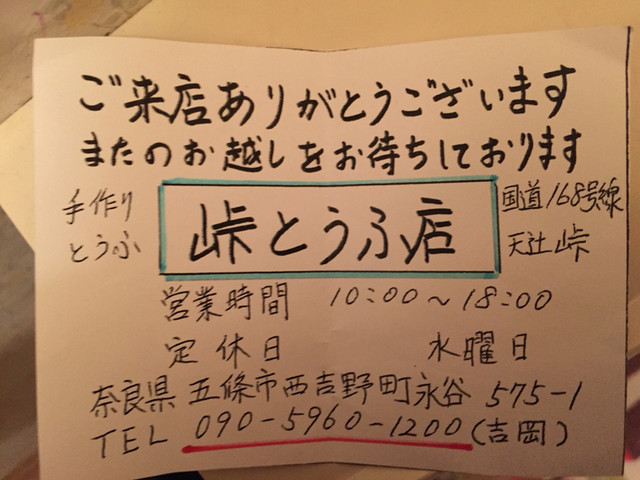 ご来店ありがとうございます
またのお越しをお待ちしております
手作り
とうふ
峠とうふ店
国道168号線
天辻峠
営業時間 10:00~18:00
定休日 水曜日
奈良県五條市西吉野町永谷 575-1
TEL 090-5960-1200(吉岡)